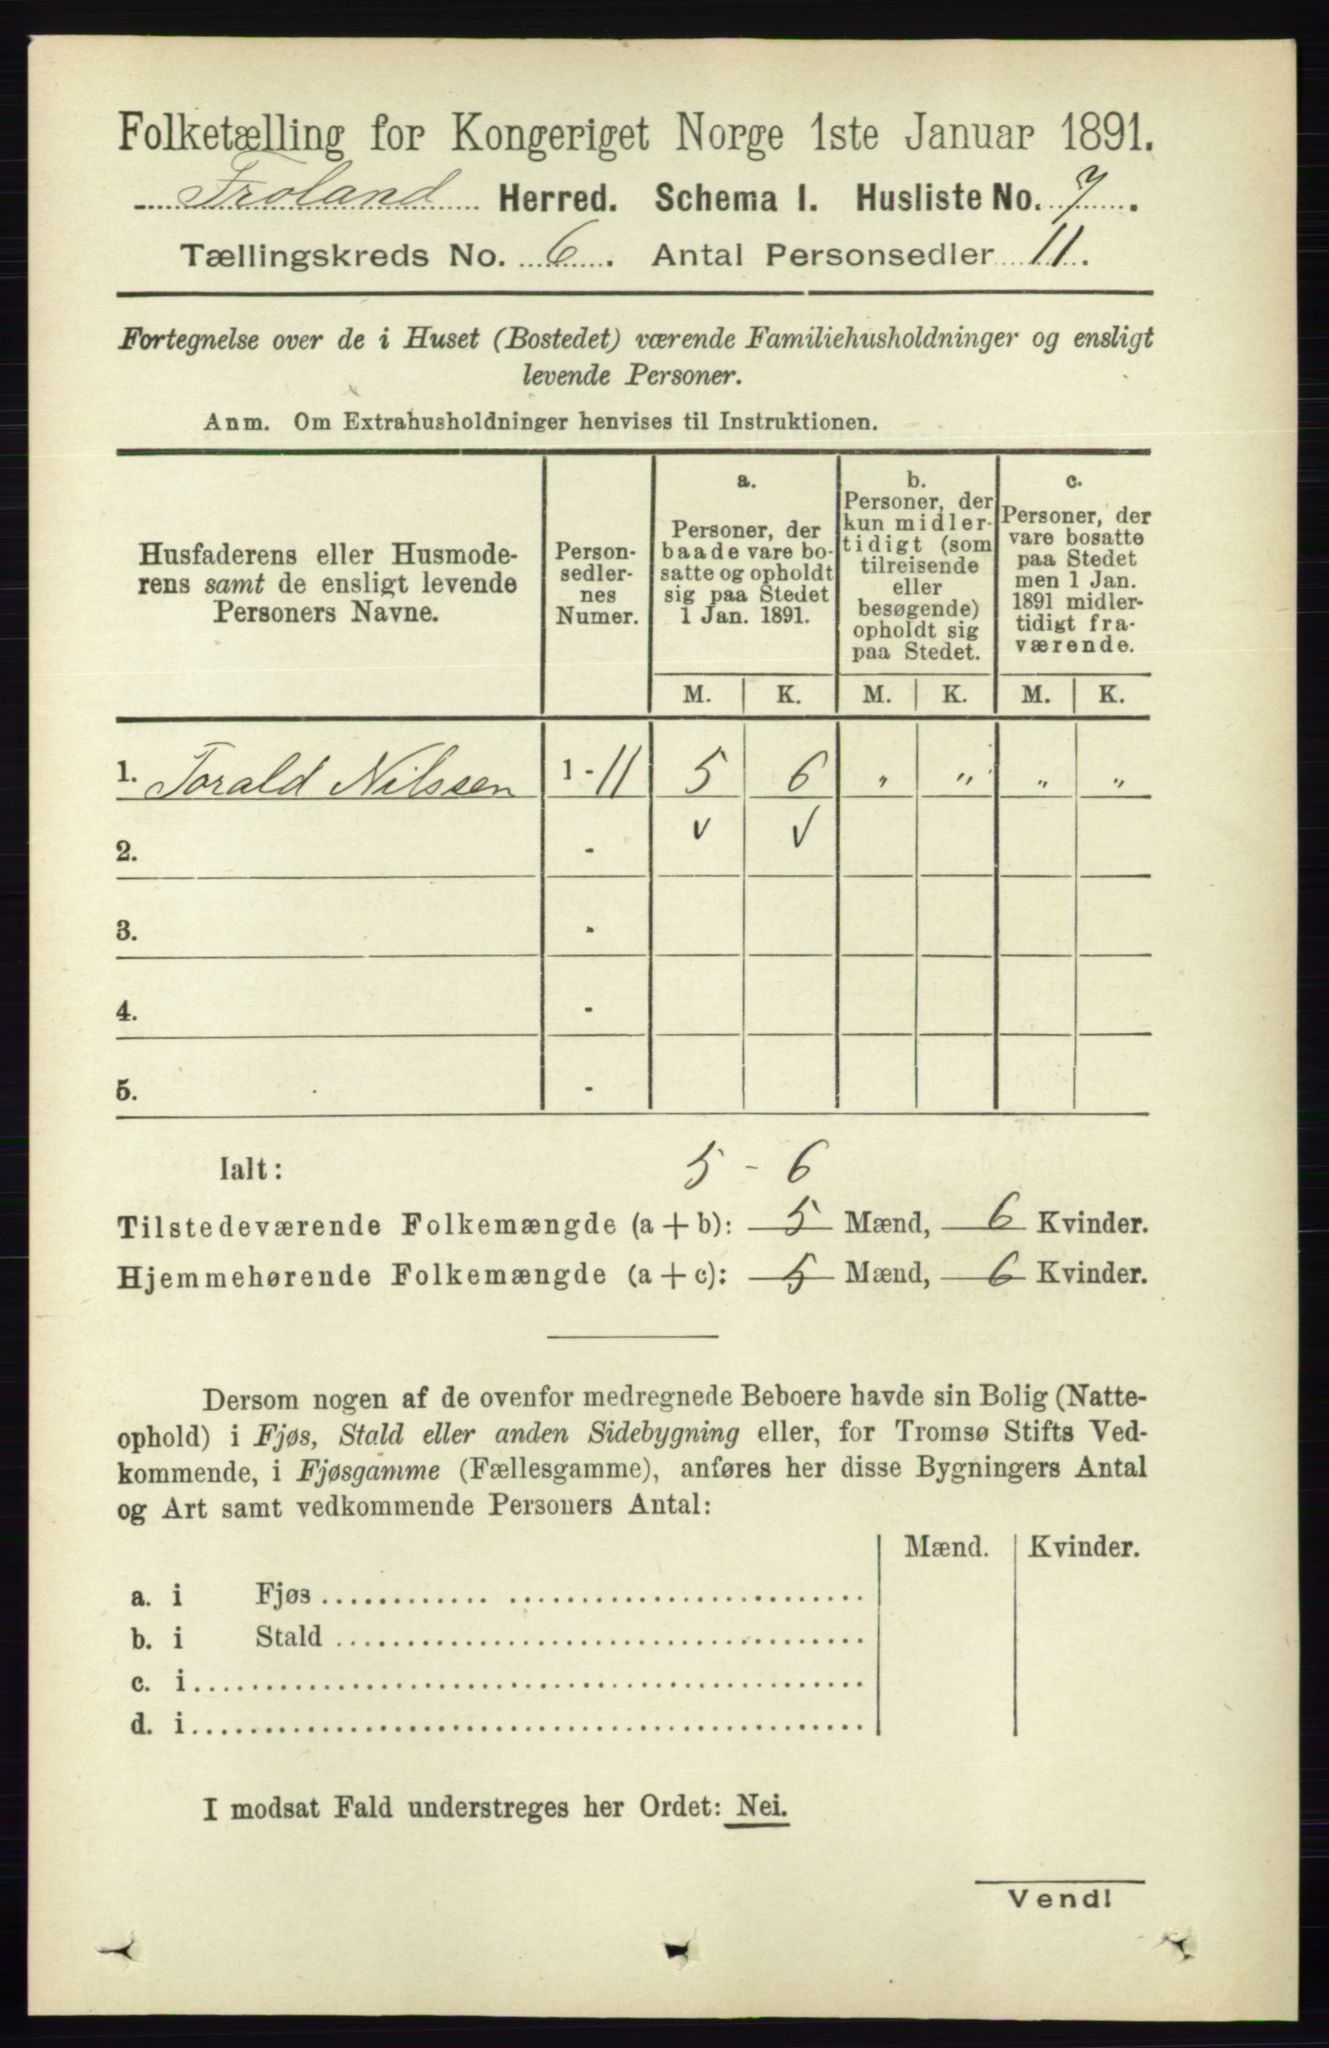 Folketælling for Kongeriget Norge 1ste Januar 1891.
Froland Herred. Schema I. Husliste No. 7.
Tællingskreds No. 6. Antal Personsedler 11.
Fortegnelse over de i Huset (Bostedet) værende Familiehusholdninger og ensligt
levende Personer.
Anm. Om Extrahusholdninger henvises til Instruktionen.
Husfaderens eller Husmode-
rens samt de ensligt levende
Personers Navne.
Person-
sedler-
nes
Numer.
a.
Personer, der
baade vare bo-
satte og opholdt
sig paa Stedet
1 Jan. 1891.
b.
Personer, der
kun midler-
tidigt (som
tilreisende
eller
besøgende)
opholdt sig
paa Stedet.
c.
Personer, der
vare bosatte
paa Stedet
men 1 Jan.
1891 midler-
tidigt fra-
værende.
M. K. M. K. M. K.
1. Torald Nilssen 1 - 11 5 6 „ „ „ „
2. - ✓ ✓
3. -
4. -
5. -
Ialt: 5 - 6
Tilstedeværende Folkemængde (a + b): 5 Mænd, 6 Kvinder.
Hjemmehørende Folkemængde (a + c): 5 Mænd, 6 Kvinder.
Dersom nogen af de ovenfor medregnede Beboere havde sin Bolig (Natte-
ophold) i Fjøs, Stald eller anden Sidebygning eller, for Tromsø Stifts Ved-
kommende, i Fjøsgamme (Fællesgamme), anføres her disse Bygningers Antal
og Art samt vedkommende Personers Antal:
Mænd. Kvinder.
a. i Fjøs
b. i Stald
c. i
d. i
I modsat Fald understreges her Ordet: Nei.
Vend!